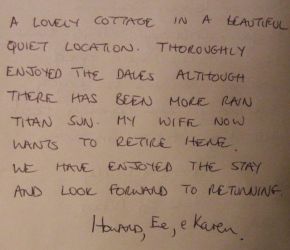 A LOVELY COTTAGE IN A BEAUTIFUL
QUIET LOCATION. THOROUGHLY
ENJOYED THE DALES ALTHOUGH
THERE HAS BEEN MORE RAIN
THAN SUN. MY WIFE NOW
WANTS TO RETIRE HERE.
WE HAVE ENJOYED THE STAY
AND LOOK FORWARD TO RETURNING.
Howard, Ee, e Karen.